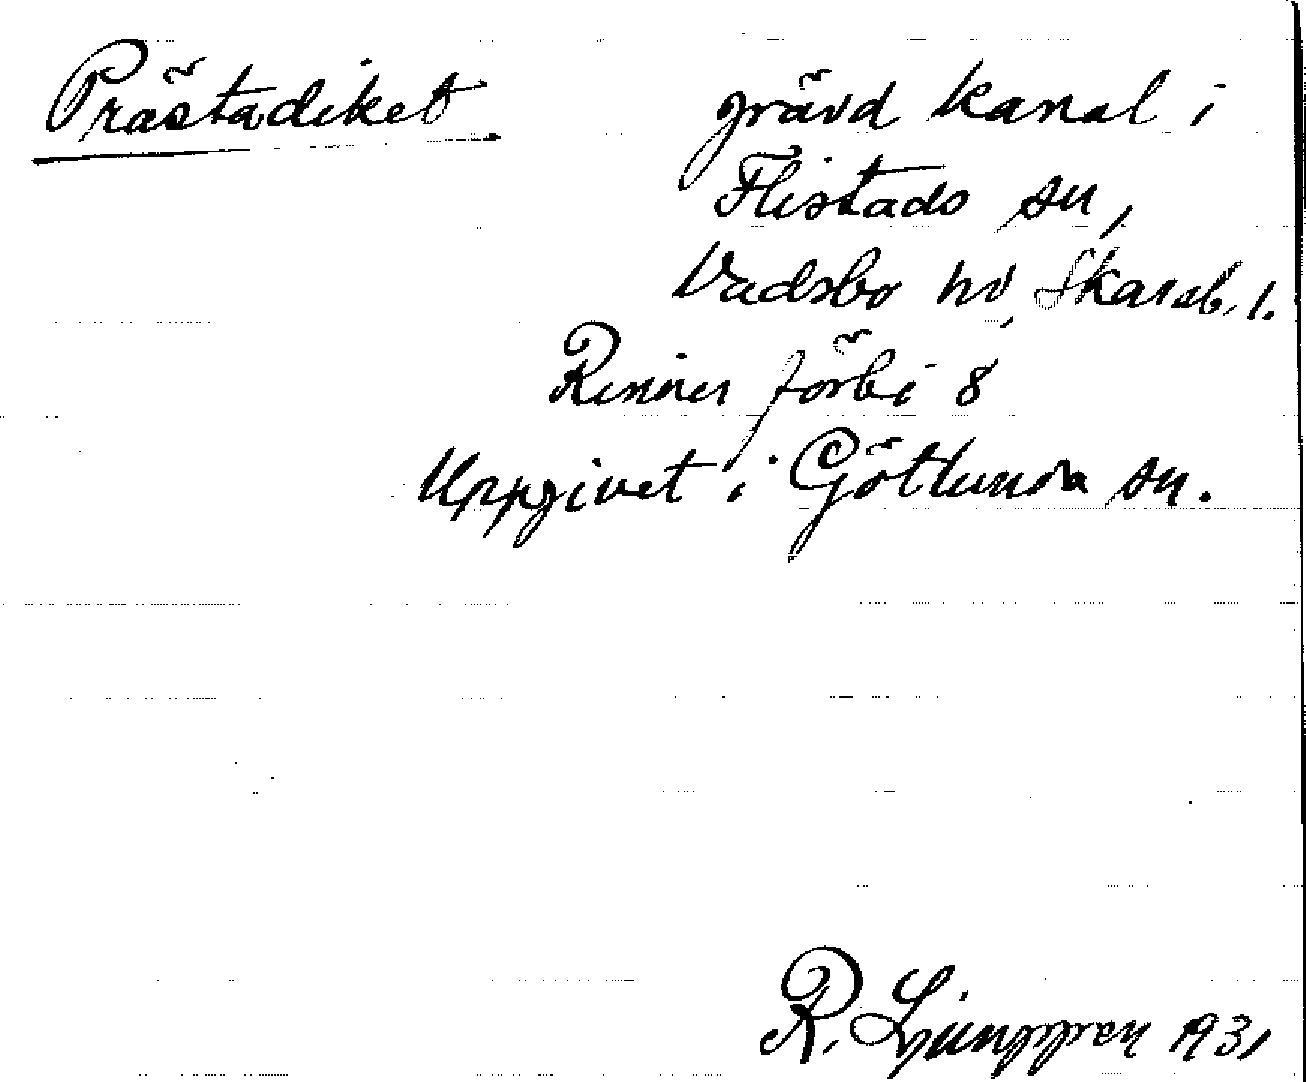 Prästadiket grävd kanal i
Flistads sn,
Vadsbo hd, Skarab. l.
Rinner förbi 8
Uppgivet i Götlunda sn.
R. Ljunggren 1931